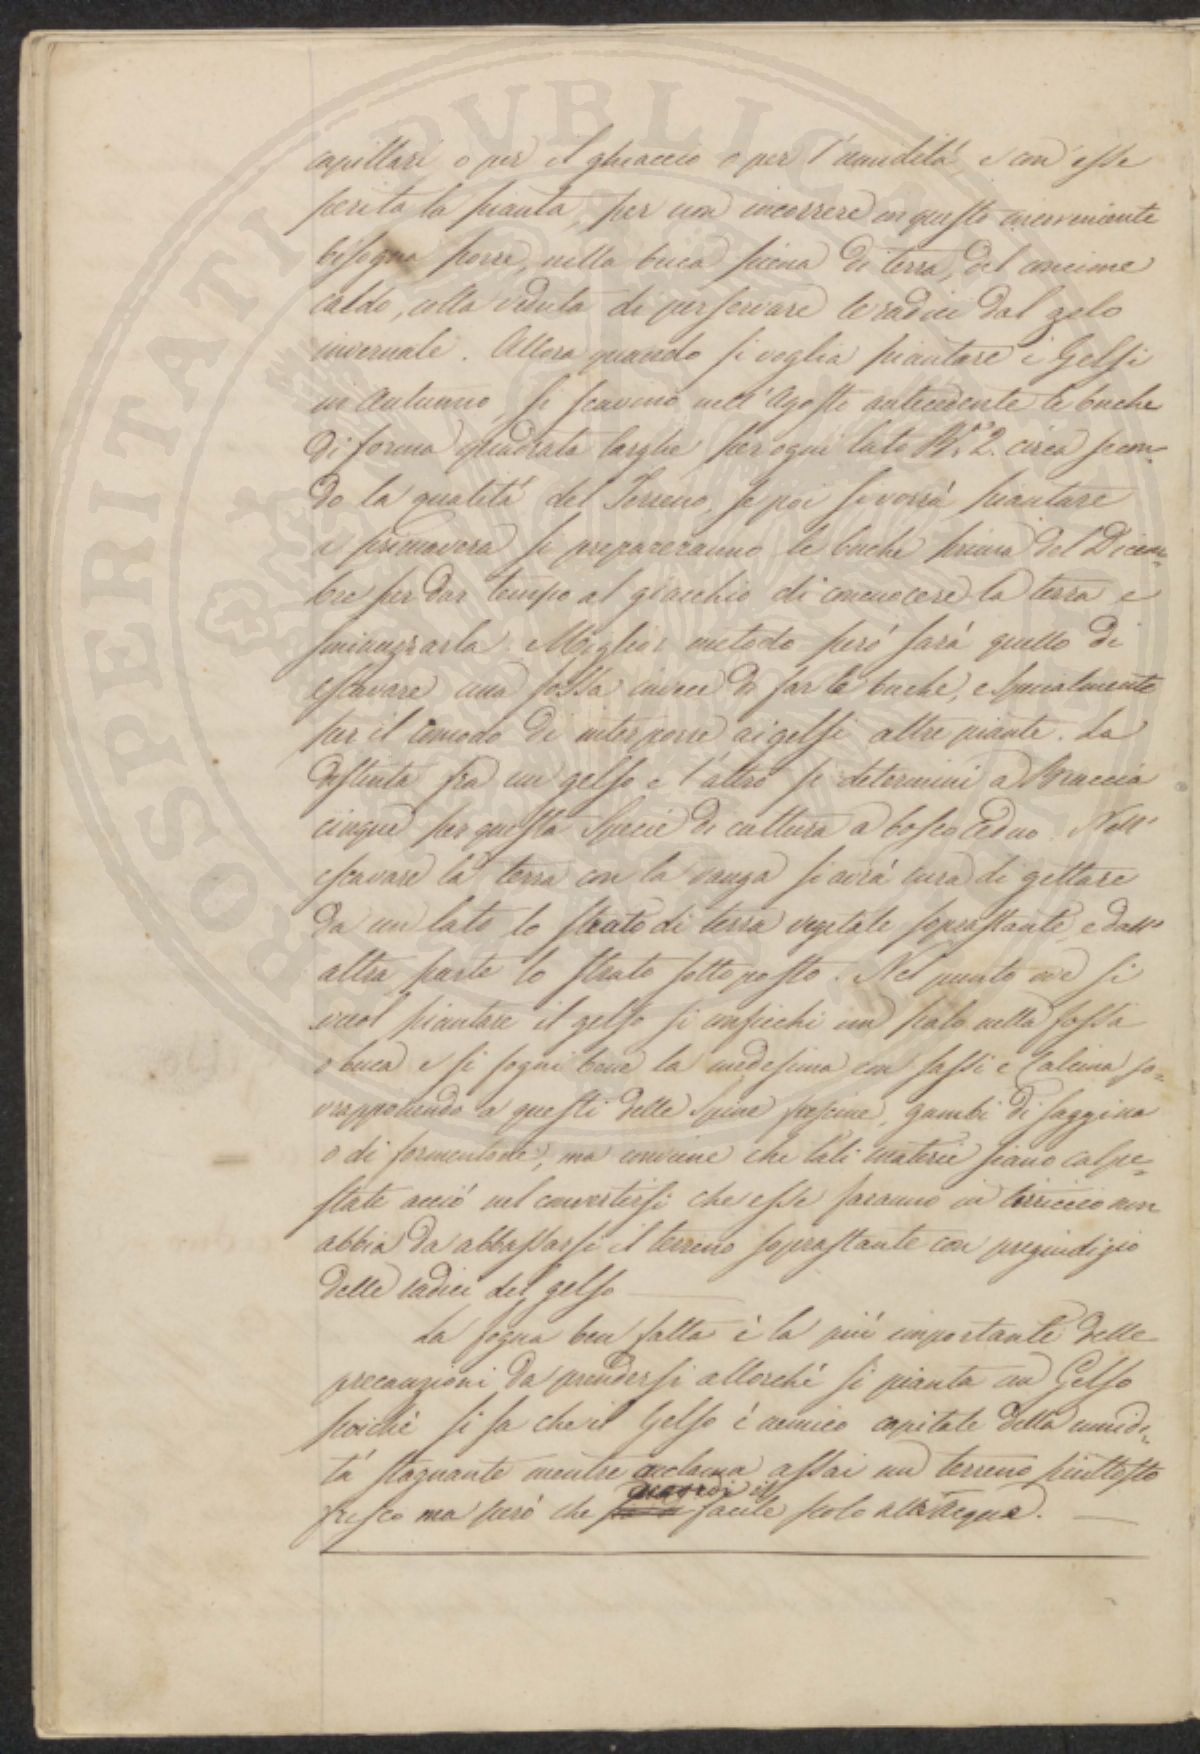 capillari o per il ghiaccio o per l'umidità, e con esse
perita la pianta, per non incorrere in questo inconveniente
bisogna porre, nella buca piena di terra, del concime
caldo, colla veduta di perservare le radici dal gelo
invernale. Allora quando si voglia piantare i Gelsi
in Autunno, si scavino nell'Agosto antecedente le buche
di forma quadrata larghe per ogni lato Bra 2. circa secon=
do la qualità del Terreno, se poi si vorrà piantare
a primavera si prepareranno le buche prima del Decem=
bre per dar tempo al giacchio di concuocere la terra e
sminuzzarla. Miglior metodo però sarà quello di
escavare una fossa invece di far le buche, e specialmente
per il comodo di interporre ai gelsi altre piante. La
distanta fra un gelso e l'altro si determini a Braccia
cinque per questa Specie di cultura a bosco Ceduo. Nell'
escavare la terra con la vanga si avrà cura di gettare
da un lato lo strato di terra vegetale soprastante, e dall'
altra parte lo strato sottoposto. Nel punto ove si
vuol piantare il gelso si conficchi un palo nella fossa
o buca e si fogni bene la medesima con sassi e Calcina so=
vrapponendo a questi delle Spine fascine, gambi di saggina
o di formentone, ma conviene che tali materie siano calpe=
state acciò nel convertirsi che esse faranno in terriccio non
abbia da abbassarsi il terreno soprastante con pregiudizio
delle radici del gelso
La fogna ben fatta è la più importante delle
precauzioni da prendersi allorchè si pianta un Gelso
poichè si sa che il Gelso è nemico capitale della umidi=
tà stagnante mentre reclama assai un terreno piuttosto
fresco ma però che accordi il facile scolo all'Acqua.
PROSPERITATI PUBLICAE